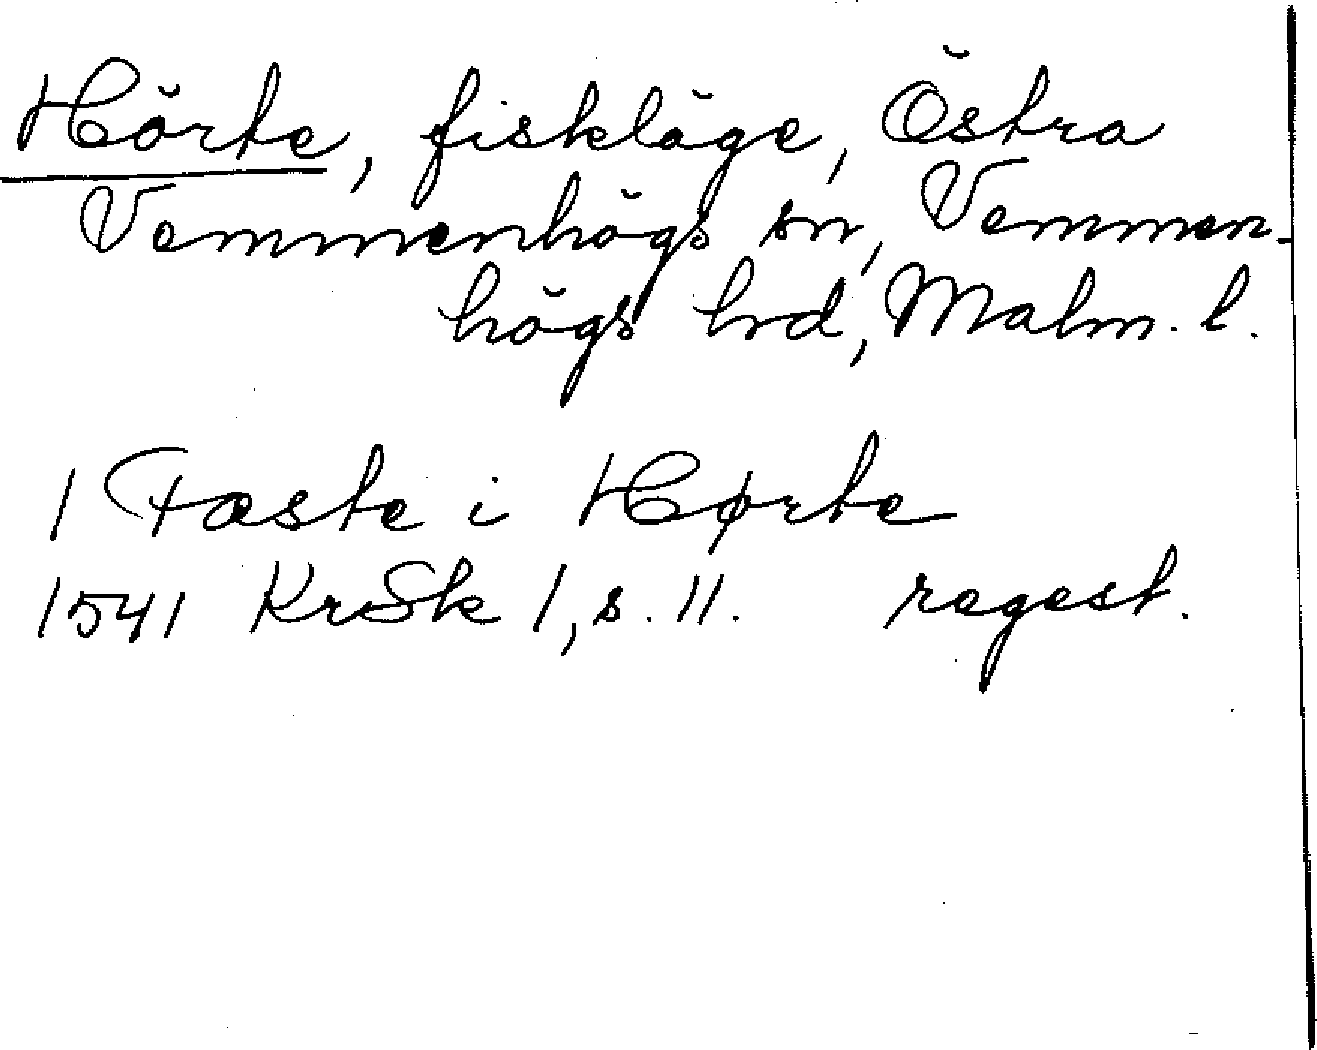 Hörte, fiskläge, Östra
Vemmenhögs sn, Vemmen-
högs hrd, Malm. l.
1 Fæste i Hørte
1541 KrSk 1, s. 11. regest.